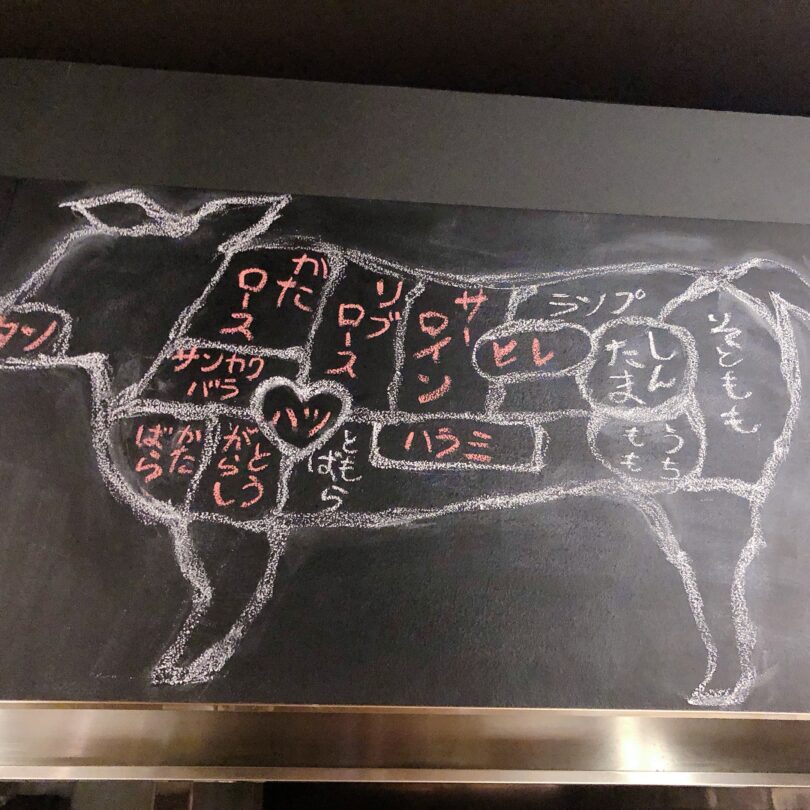 タン
かた
ロース
サンカク
バラ
リブ
ロース
サー
ロイン
ランプ
ヒレ
しん
たま
そともも
ハツ
かた
ばら
とう
がらし
ともばら
ハラミ
うち
もも